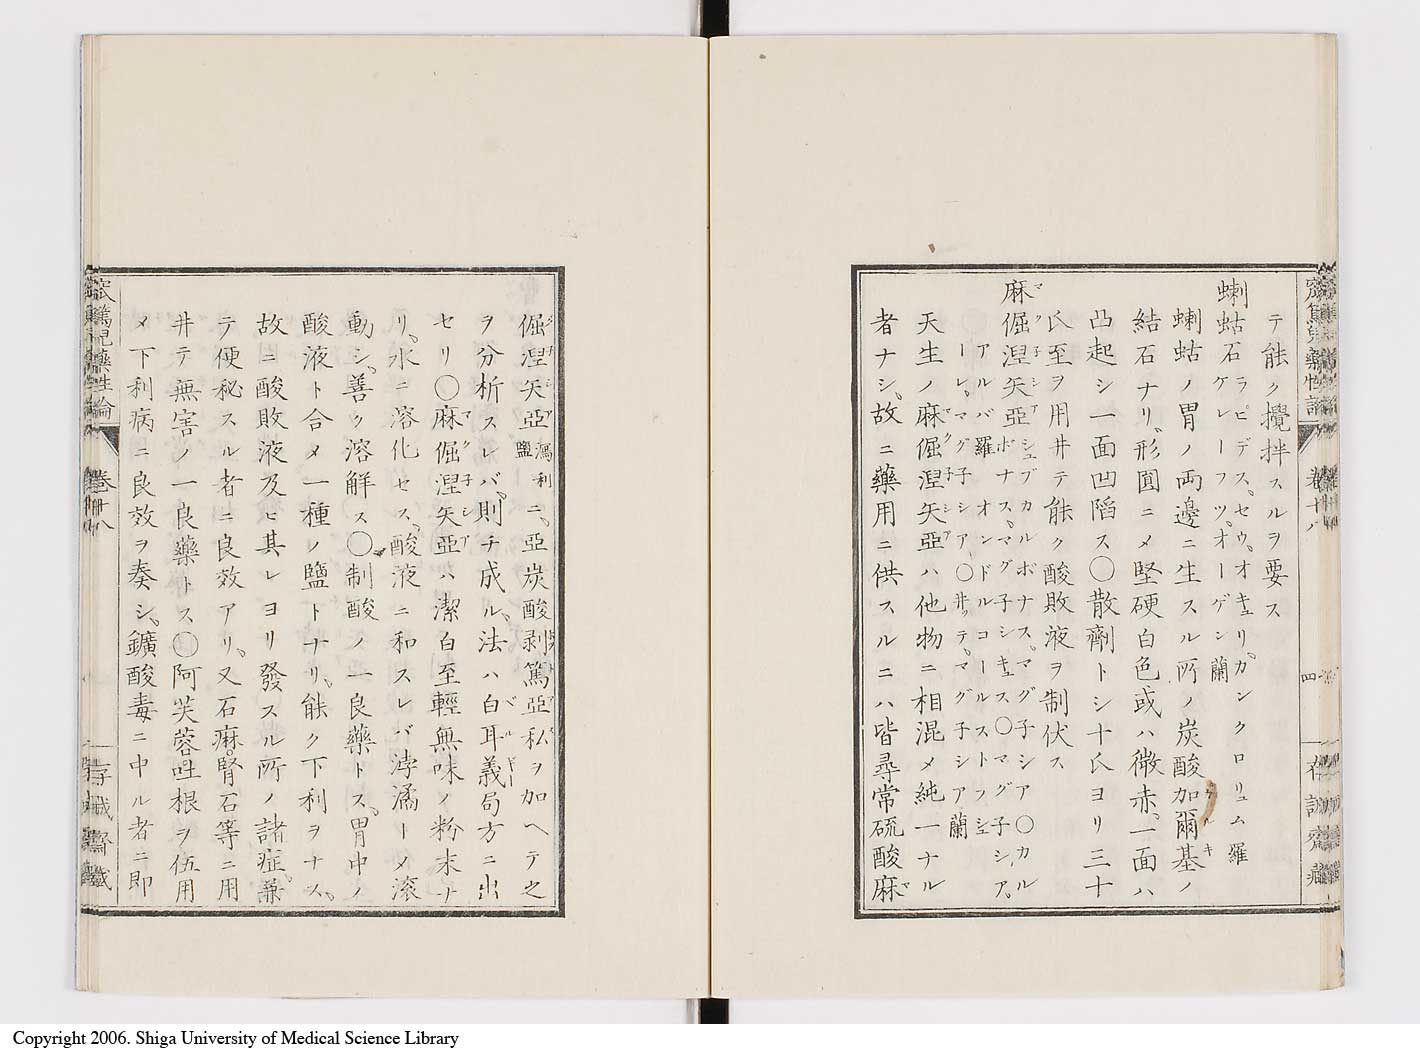 テ能ク攪拌スルヲ要ス
蝲蛄石 ラピデス、セウ、オキュリ、カンクロリュム 羅
ケレーフツ、オーゲン 蘭
蝲蛄ノ胃ノ両邊ニ生スル所ノ炭酸加爾基ノ
結石ナリ、形圓ニメ堅硬白色或ハ微赤、一面ハ
凸起シ一面凹陷ス〇散劑トシ十氏ヨリ三十
氏至ヲ用井テ能ク酸敗液ヲ制伏ス
麻倔涅矢亞 シュブカルボナス、マグ子シア〇カル
ボナス、マグ子シキュス〇マグ子シア、
アルバ 羅 オンドルコールストフシュー
レ、マグ子シア、〇井ッテ、マグ子シア 蘭
天生ノ麻倔涅矢亞ハ他物ニ相混メ純一ナル
者ナシ、故ニ藥用ニ供スルニハ皆尋常硫酸麻
倔涅矢亞 瀉利鹽 ニ、亞炭酸剥篤亞私ヲ加ヘテ之
ヲ分析スレバ、則チ成ル、法ハ白耳義局方ニ出
セリ〇麻倔涅矢亞ハ潔白至輕無味ノ粉末ナ
リ、水ニ溶化セス、酸液ニ和スレバ浡潏ーメ滚
動シ、善ク溶解ス〇制酸ノ一良藥トス、胃中ノ
酸液ト合メ一種ノ鹽トナリ、能ク下利ヲナス、
故ニ酸敗液及ヒ其レヨリ發スル所ノ諸症、兼
テ便秘スル者ニ良效アリ、又石麻。腎石等ニ用
井テ無害ノ一良藥トス〇阿芙蓉吐根ヲ伍用
メ下利病ニ良效ヲ奏シ、鑛酸毒ニ中ル者ニ即
窊篤兒藥性論
卷十八
四
窊篤兒藥性論
卷十八